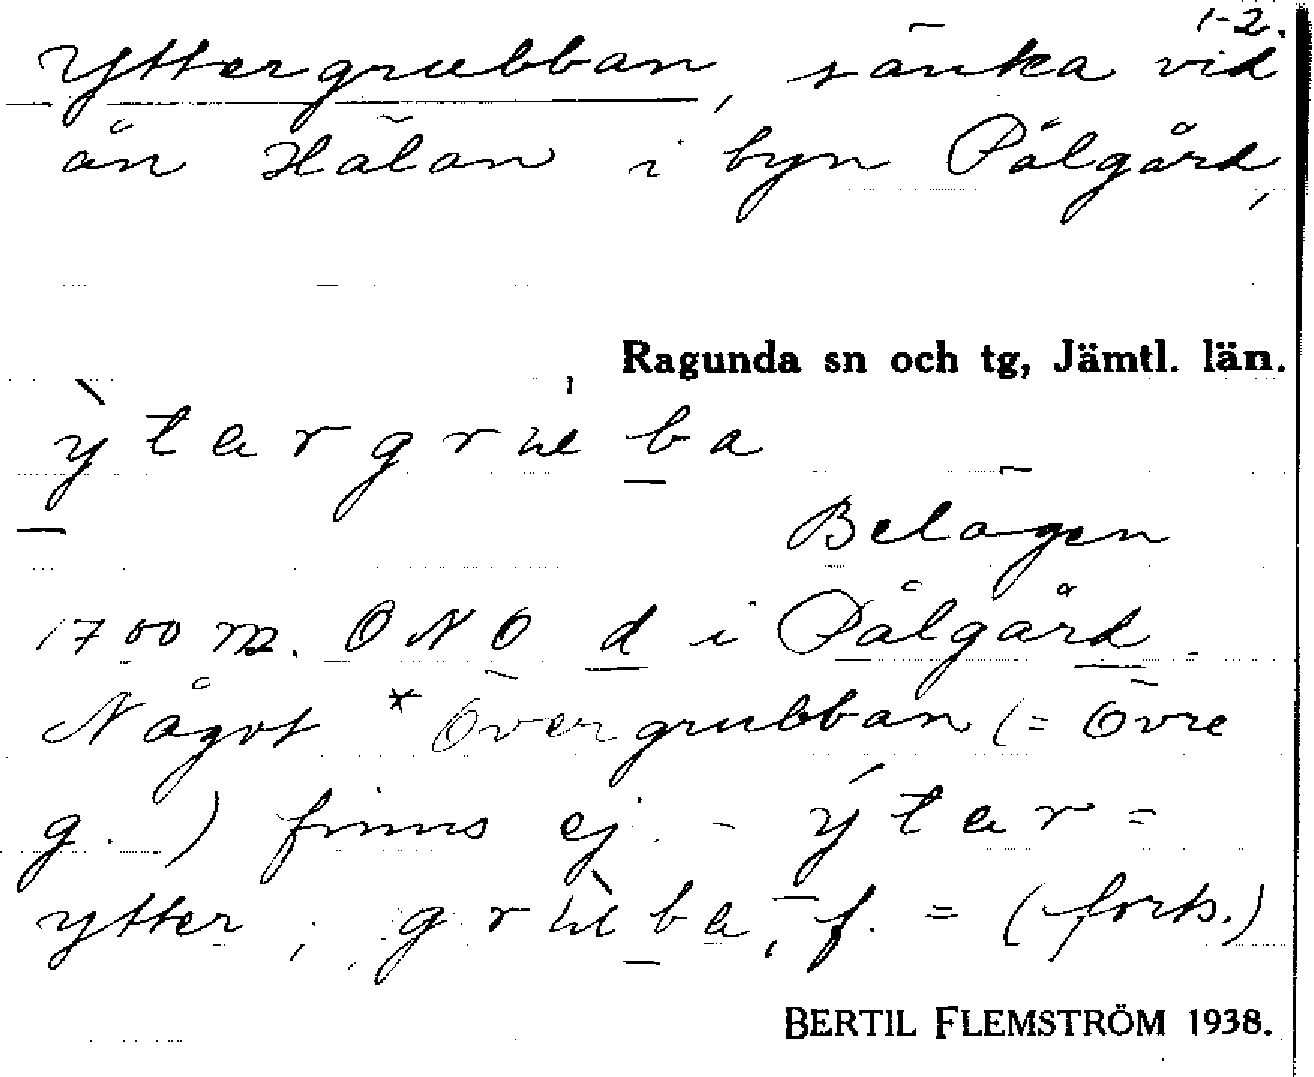 1-2.
Yttergrubban, sänka vid
ån Hälån i byn Pålgård,
Ragunda sn och tg, Jämtl. län.
Belägen
1700 m. ONO d i Pålgård.
Något *Övergrubban (= Övre
g.) finns ej. - ýtər =
ytter; f. = (forts.)
BERTIL FLEMSTRÖM 1938.